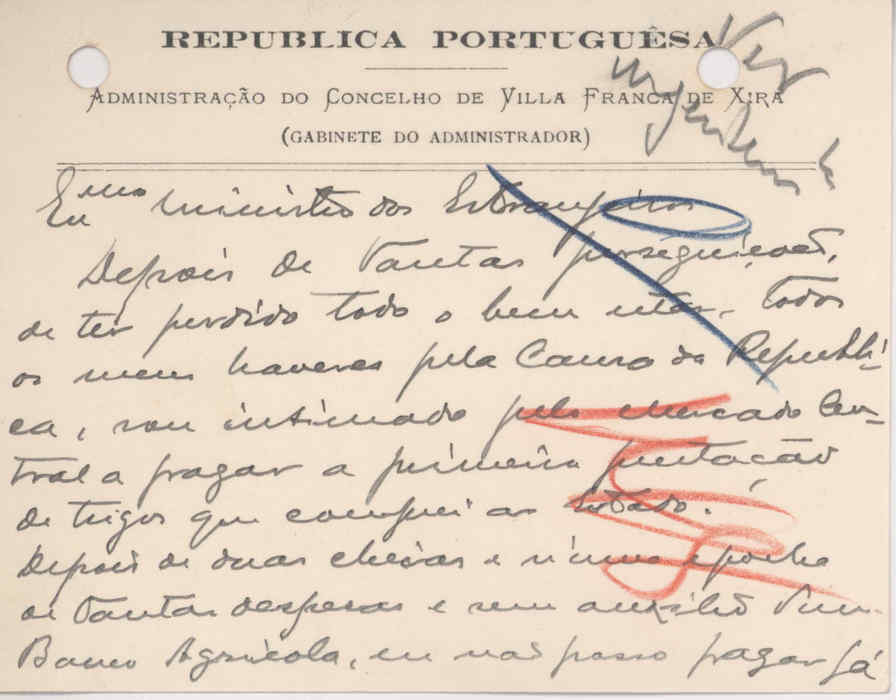 REPUBLICA PORTUGUÊSA
ADMINISTRAÇÃO DO CONCELHO DE VILLA FRANCA DE XIRA
(GABINETE DO ADMINISTRADOR)
Exmo Ministro dos Estrangeiros
Depois de tantas perseguições,
de ter perdido todo o bem estar, todos
os meus haveres pela Causa da Republi-
ca, sou intimado pelo Mercado Cen-
tral a pagar a primeira prestação
de trigos que comprei ao Estado.
Depois de duas cheias e n'uma epocha
de tantas despesas e sem auxilio d'um
Banco Agricola, eu não posso pagar já